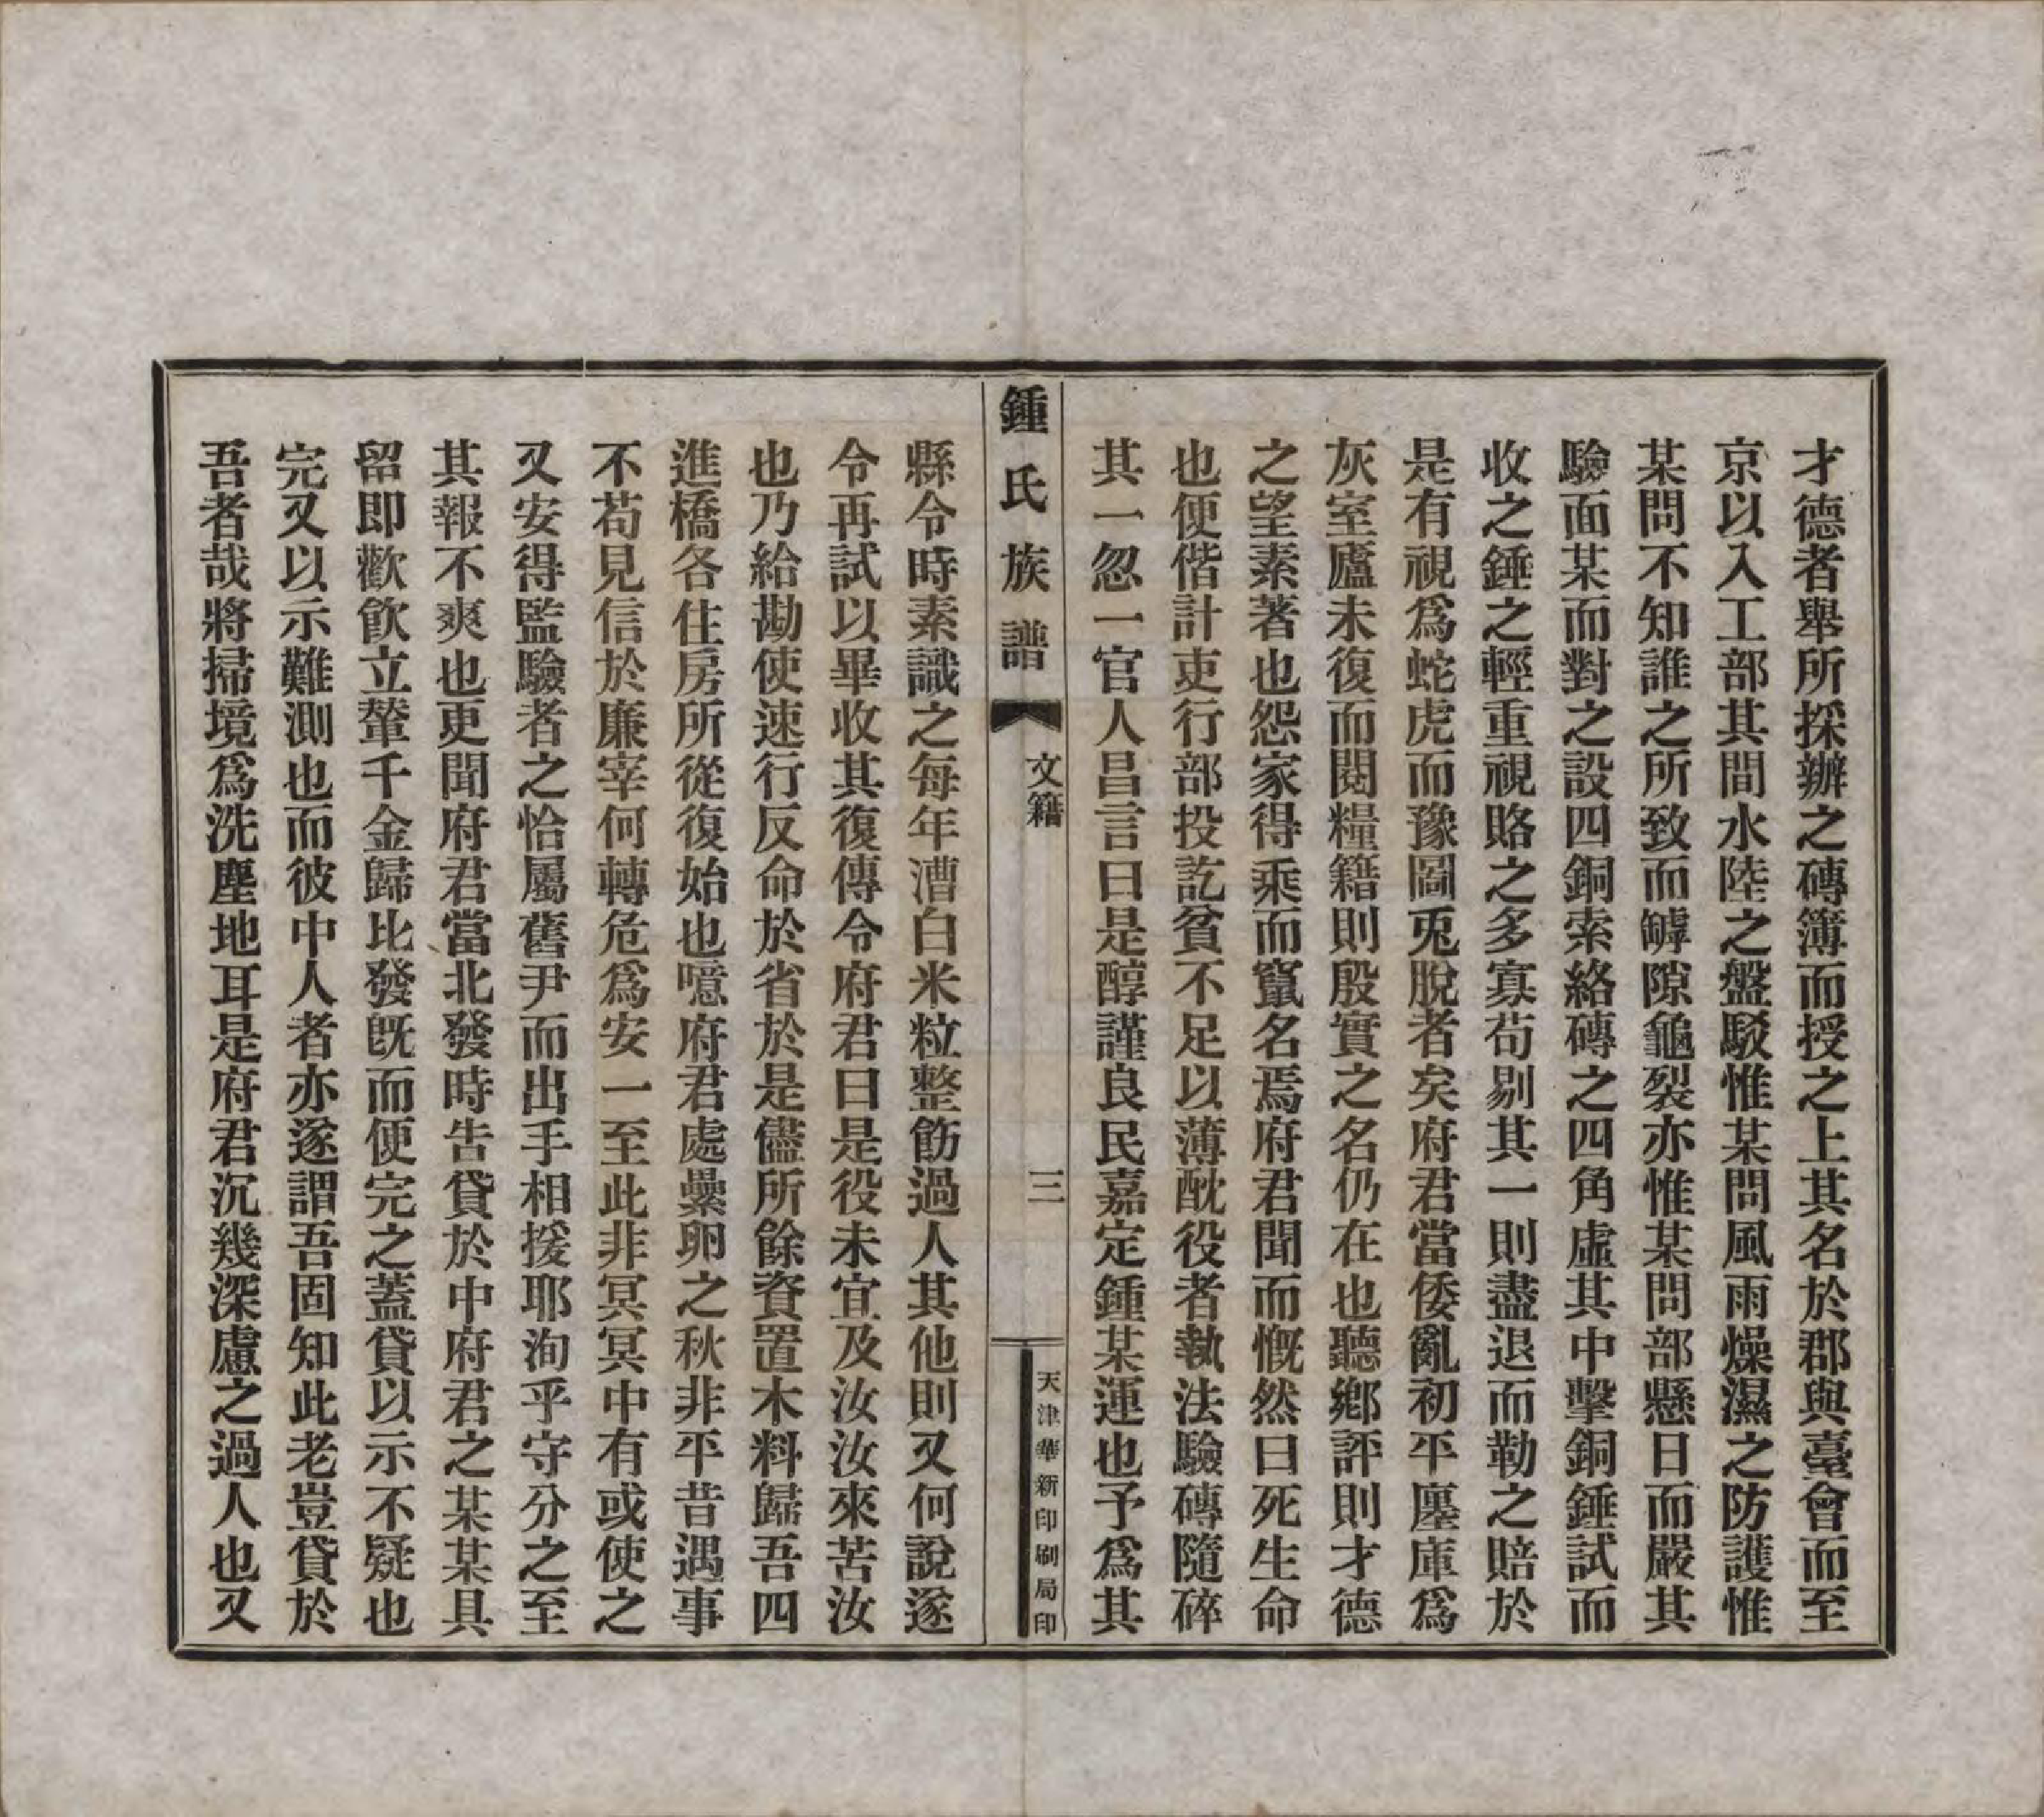 才德者舉所採辦之磚簿而授之上其名於郡與臺會而至
京以入工部其間水陸之盤駁惟某問風雨燥濕之防護惟
某問不知誰之所致而罅隙龜裂亦惟某問部懸日而嚴其
驗面某而對之設四銅索絡磚之四角虛其中擊銅錘試而
收之錘之輕重視賂之多寡苟剔其一則盡退而勒之賠於
是有視爲蛇虎而豫圖兎脫者矣府君當倭亂初平廛庫爲
灰室廬未復而閱糧籍則殷實之名仍在也聽鄕評則才德
之望素著也怨家得乘而竄名焉府君聞而慨然曰死生命
也便偕計吏行部投訖貧不足以薄酖役者執法驗磚隨碎
其一忽一官人昌言曰是醇謹良民嘉定鍾某運也予爲其
鍾氏族譜
文籍
三
天津華新印刷局印
縣令時素識之每年漕白米粒整飭過人其他則又何說遂
令再試以畢收其復傳令府君曰是役未宜及汝汝來苦汝
也乃給勘使速行反命於省於是儘所餘資置木料歸吾四
進橋各住房所從復始也噫府君處纍卵之秋非平昔遇事
不苟見信於廉宰何轉危爲安一至此非冥冥中有或使之
又安得監驗者之恰屬舊尹而出手相援耶洵乎守分之至
其報不爽也更聞府君當北發時吿貸於中府君之某某具
留即歡飮立輦千金歸比發旣而便完之蓋貸以示不疑也
完又以示難測也而彼中人者亦遂謂吾固知此老豈貸於
吾者哉將掃境爲洗塵地耳是府君沉幾深慮之過人也又